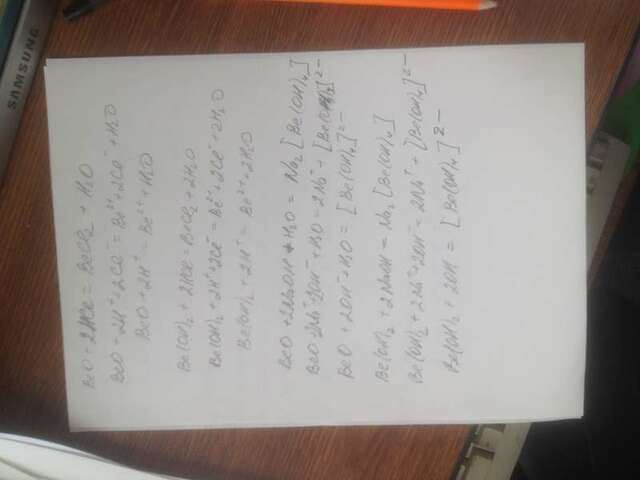 SAMSUNG
BeO + 2HCl = BeCl₂ + H₂O
BeO + 2H⁺ + 2Cl⁻ = Be²⁺ + 2Cl⁻ + H₂O
BeO + 2H⁺ = Be²⁺ + H₂O
Be(OH)₂ + 2HCl = BeCl₂ + 2H₂O
Be(OH)₂ + 2H⁺ + 2Cl⁻ = Be²⁺ + 2Cl⁻ + 2H₂O
Be(OH)₂ + 2H⁺ = Be²⁺ + 2H₂O
BeO + 2NaOH + H₂O = Na₂[Be(OH)₄]
BeO + 2Na⁺ + 2OH⁻ + H₂O = 2Na⁺ + [Be(OH)₄]²⁻
BeO + 2OH⁻ + H₂O = [Be(OH)₄]²⁻
Be(OH)₂ + 2NaOH = Na₂[Be(OH)₄]
Be(OH)₂ + 2Na⁺ + 2OH⁻ = 2Na⁺ + [Be(OH)₄]²⁻
Be(OH)₂ + 2OH = [Be(OH)₄]²⁻